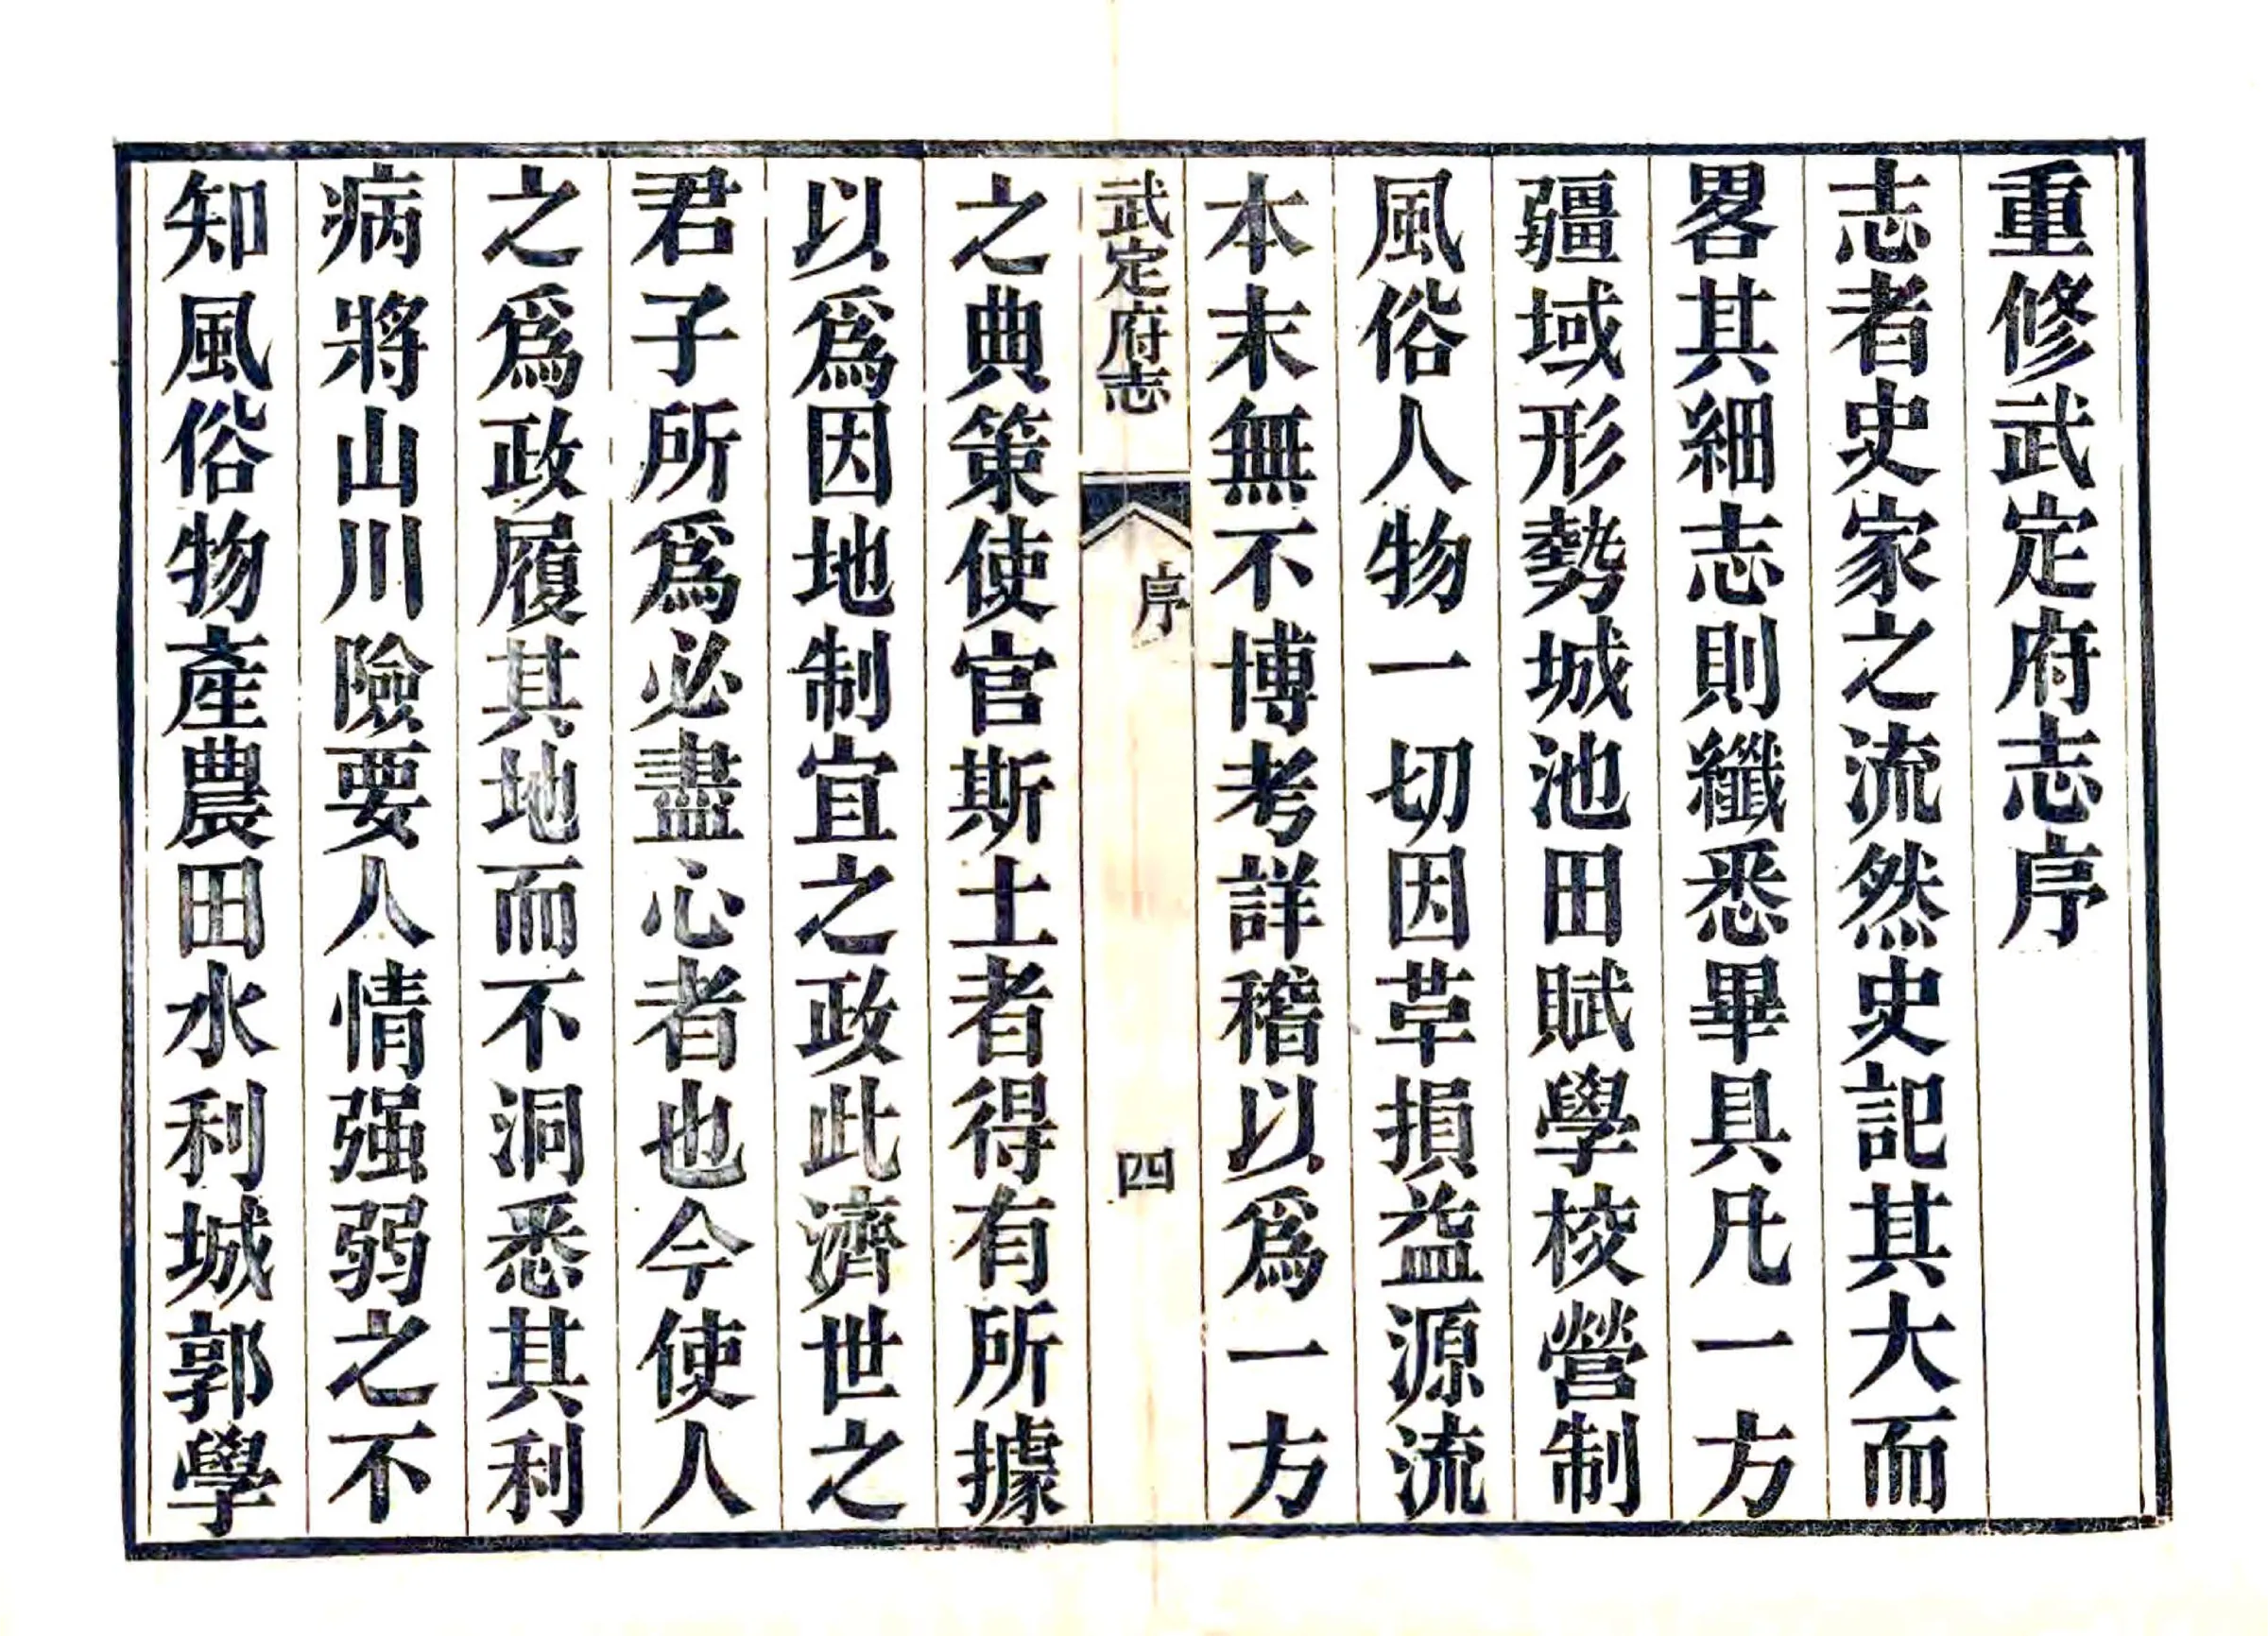 重修武定府志序
志者史家之流然史記其大而
畧其細志則纖悉畢具凡一方
疆域形勢城池田賦學校營制
風俗人物一切因革損益源流
本末無不博考詳稽以爲一方
武定府志
序
四
之典策使官斯土者得有所據
以爲因地制宜之政此濟世之
君子所爲必盡心者也今使人
之爲政履其地而不洞悉其利
病將山川險要人情强弱之不
知風俗物產農田水利城郭學